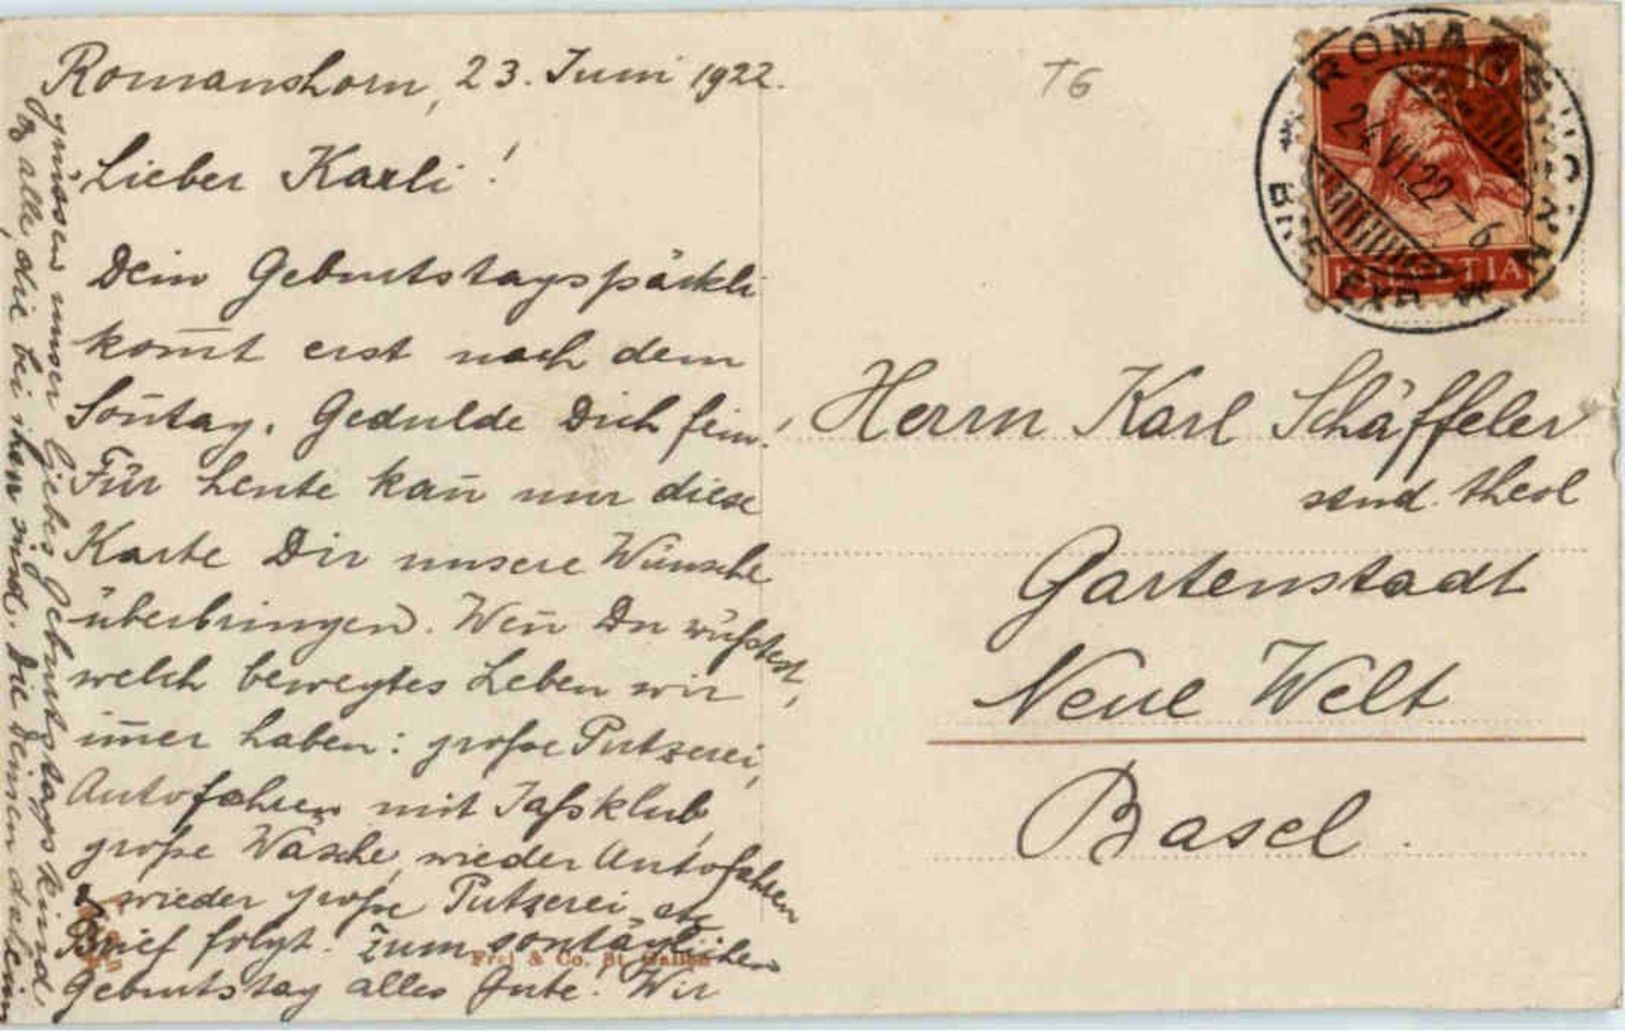 Romanshorn, 23. Juni 1922.
Lieber Karli!
Dein Geburtstagspäckli
kom̄t erst nach dem
Son̄tag. Gedulde Dich fein!
Für heute kan̄ nur diese
Karte Dir unsere Wünsche
überbringen. Wen̄ Du wüßtest,
welch bewegtes Leben wir
im̄er haben: große Putzerei,
Autofahren mit Jaßklub,
große Wäsche, wieder Autofahren
& wieder große Putzerei etc
Brief folgt. Zum son̄täglichen
Geburtstag alles Gute. Wir
grüssen unser liebes Geburtstagskind
& alle, die bei ihm sind. Die Deinen daheim
T6
ROMANSHORN
24.VI.22-6
BRF. EXP.
10
HELVETIA
Herrn Karl Schäffeler
stud. theol
Gartenstadt
Neue Welt
Basel.
Frei & Co. St. Gallen